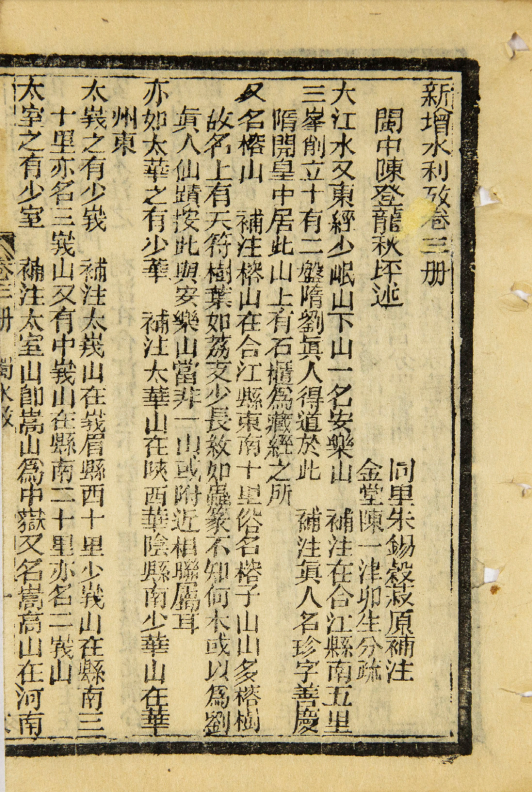 新增水利攷卷三册
閩中陳登龍秋坪述
同里朱錫穀菽原補注
金堂陳一津卯生分疏
大江水又東經少岷山下山一名安樂山 補注在合江縣南五里
三峯削立十有二盤隋劉眞人得道於此 補注眞人名珍字善慶
隋開皇中居此山上有石櫃爲藏經之所
又名榕山 補注榕山在合江縣東南十里俗名榕子山山多榕樹
故名上有天符樹葉如荔支少長紋如蟲篆不知何木或以爲劉
眞人仙蹟按此與安樂山當非一山或附近相聯屬耳
亦如太華之有少華 補注太華山在陝西華陰縣南少華山在華
州東
太峩之有少峩 補注太峩山在峩眉縣西十里少峩山在縣南三
十里亦名三峩山又有中峩山在縣南二十里亦名二峩山
太室之有少室 補注太室山卽嵩山爲中嶽又名嵩高山在河南
卷三册 蜀水攷